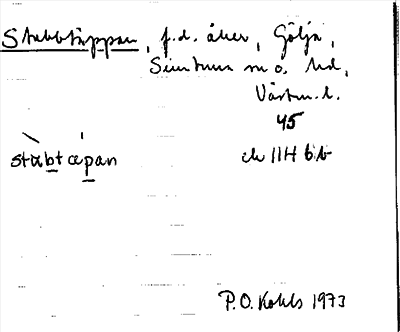 Stabbtäppan, f.d. åker, Gölja,
Simtuna sn o. hd,
Västm. l.
45
stabtæpan ek 11H 6b
P.O. Kohls 1973